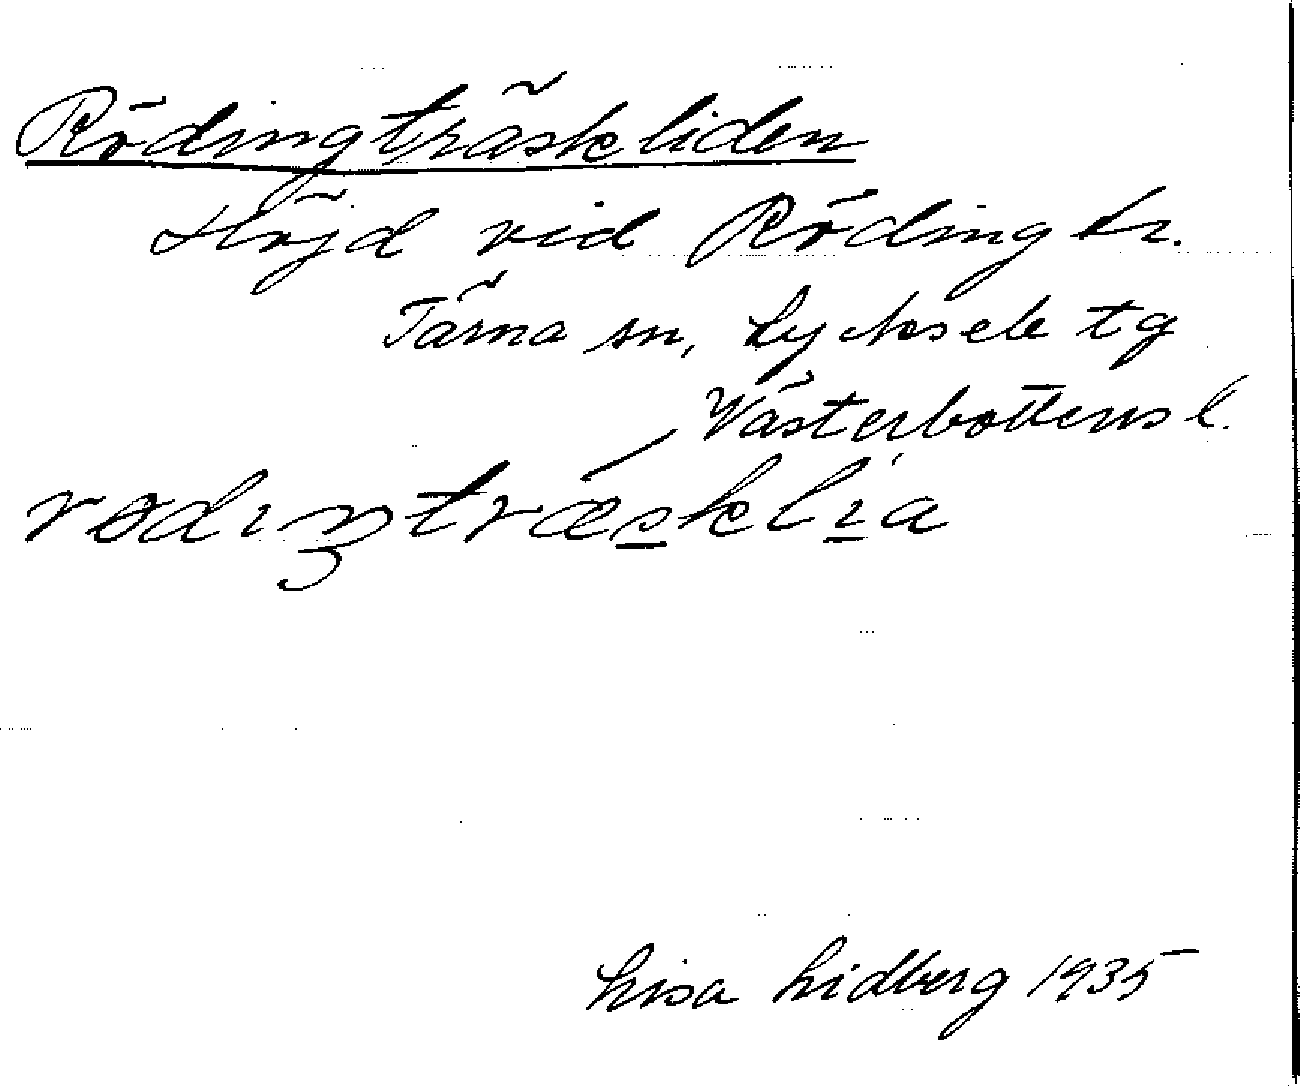 Rödingträskliden
Höjd vid Rödingtr.
Tärna sn, Lycksele tg
Västerbottens l.
rødıŋtræsklıa
Lisa Lidberg 1935